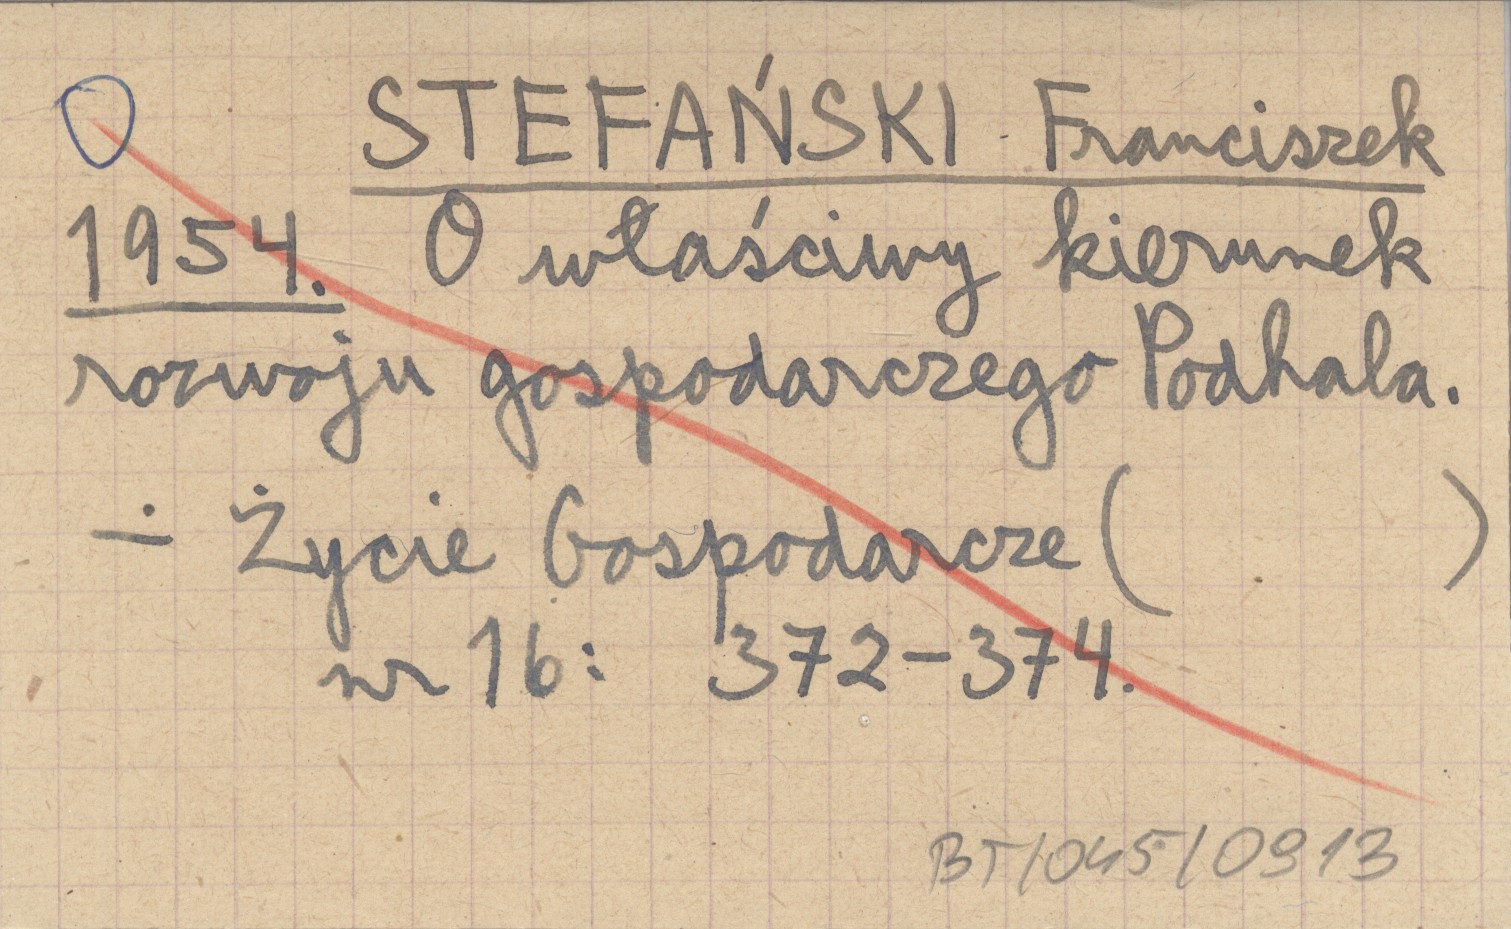 STEFAŃSKI Franciszek
1954. O właściwy kierunek
rozwoju gospodarczego Podhala.
– Życie Gospodarcze ( )
nr 16: 372–374.
BT/045/0913